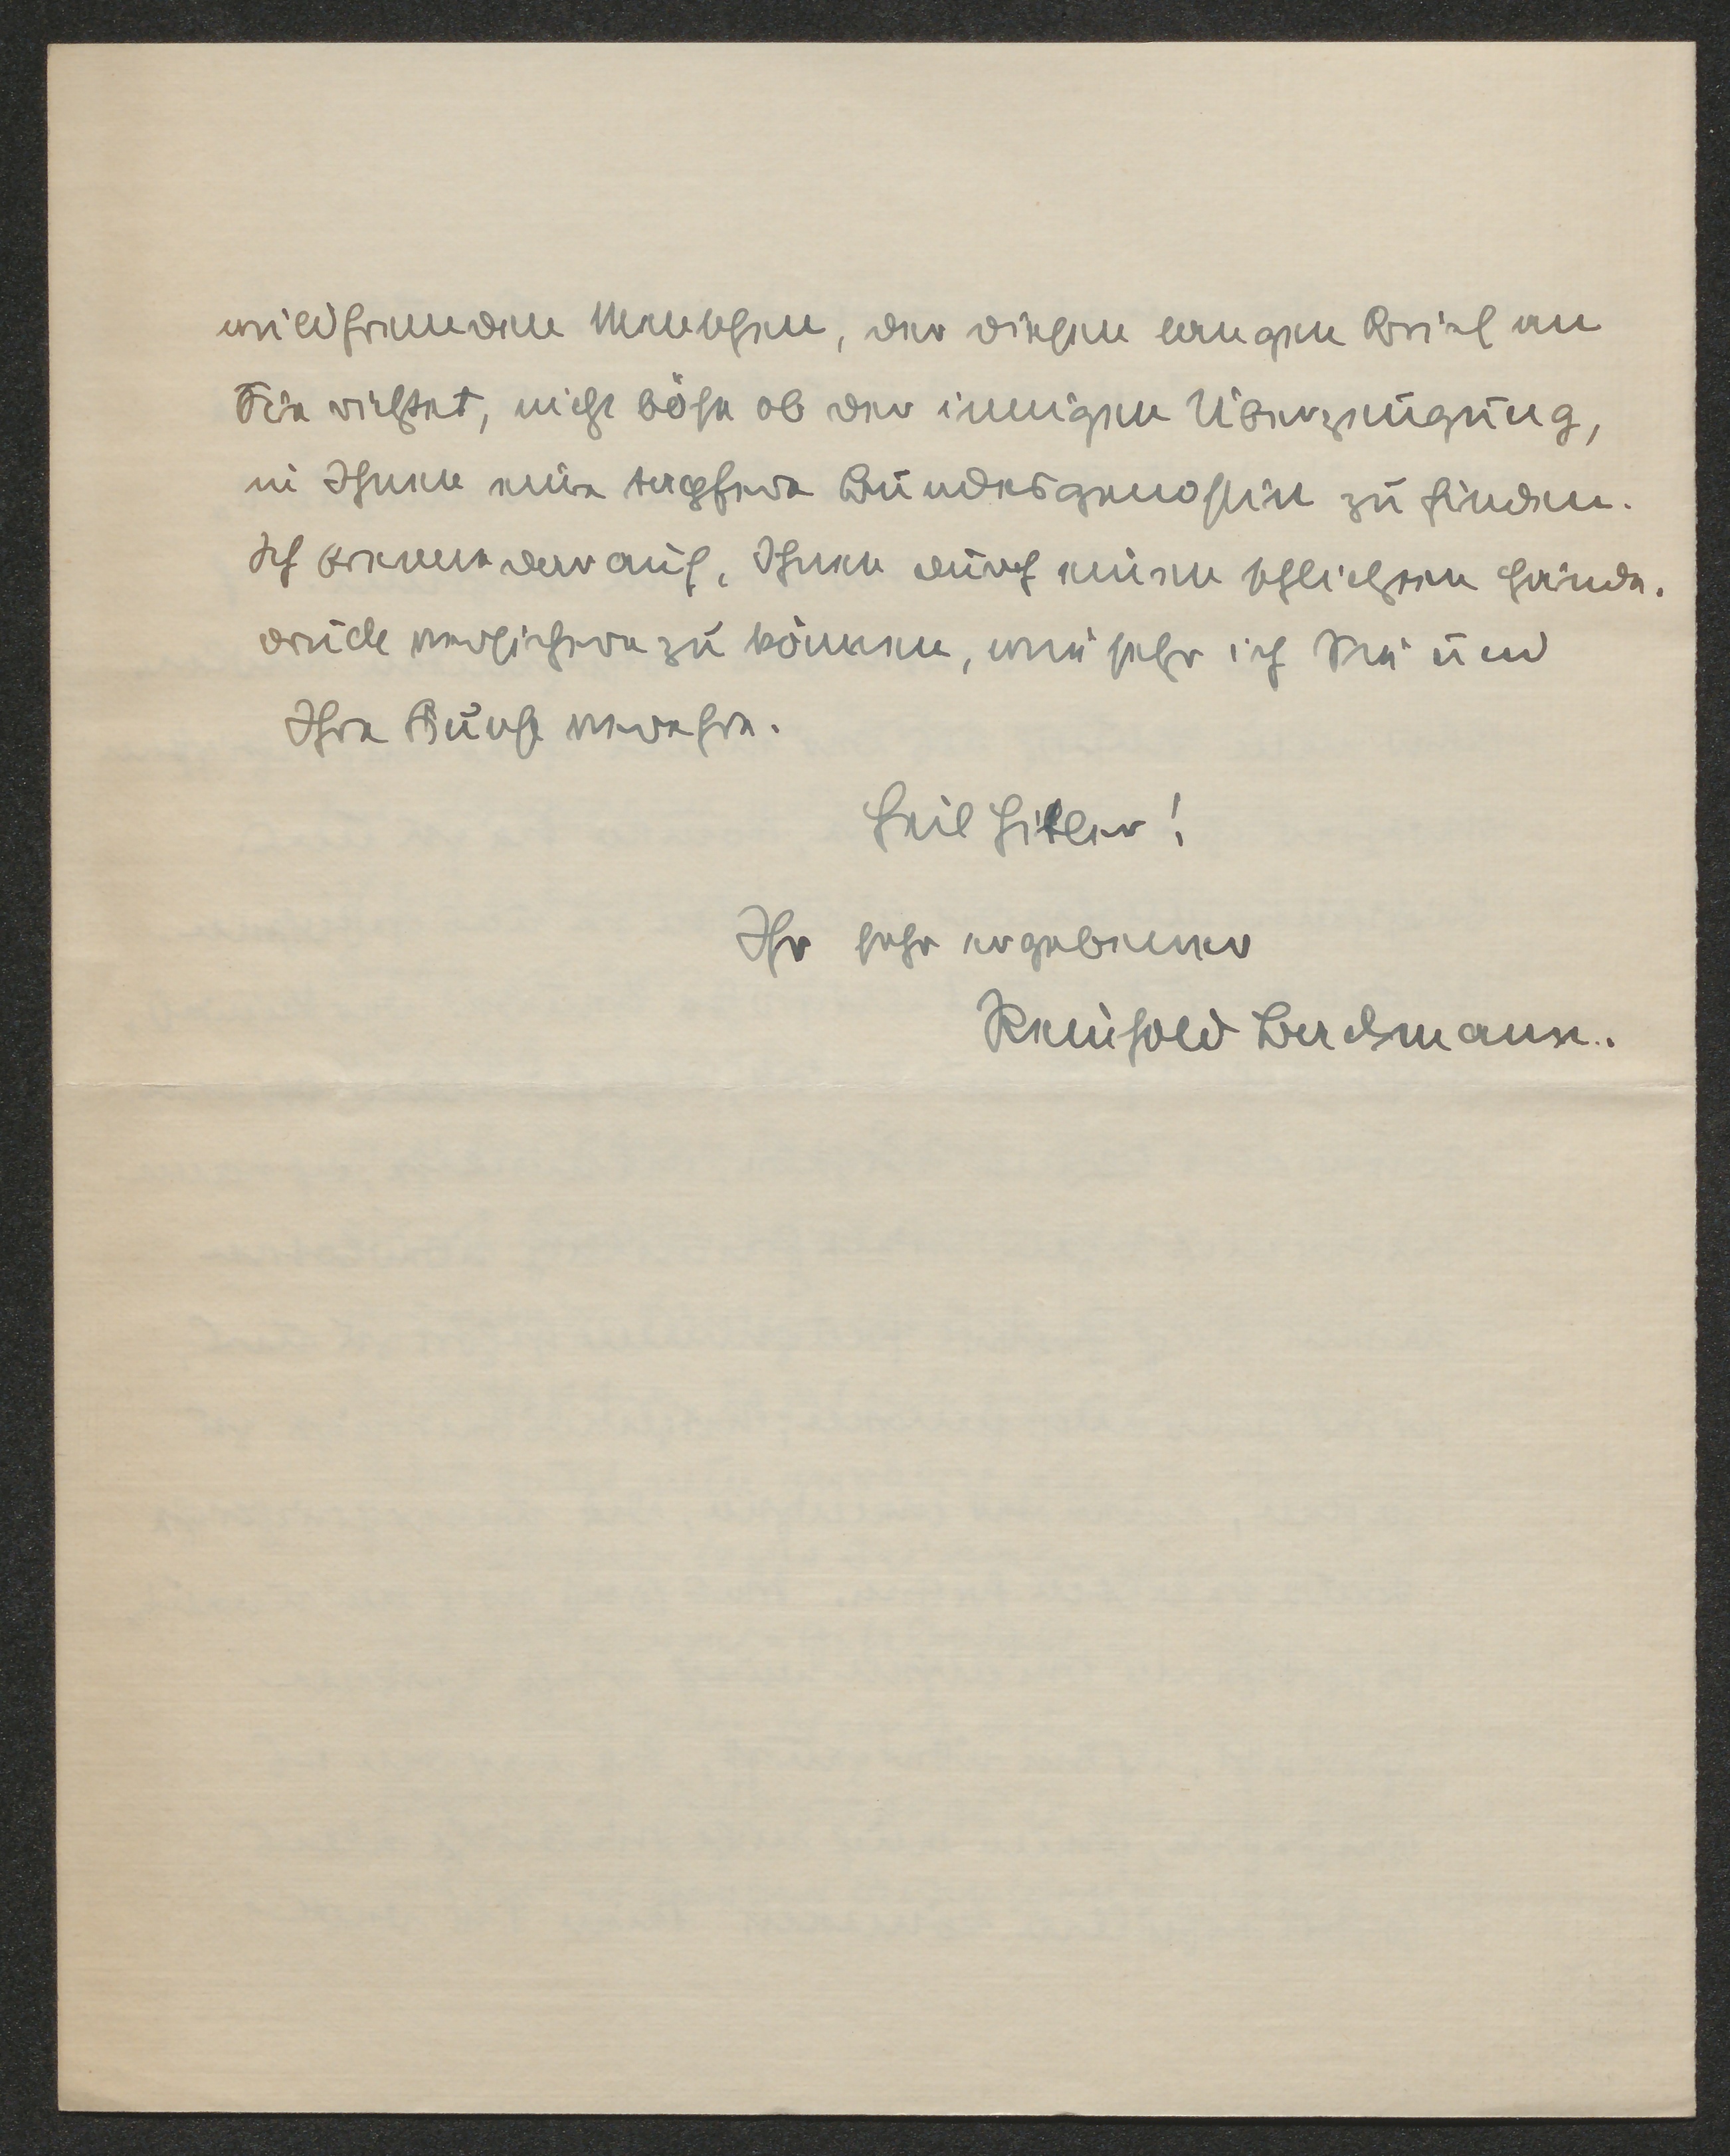 wildfremden Menschen, der diesen langen Brief an
Sie richtet, nicht böse ob der innigen Überzeugung,
in Ihnen eine tapfere Bundesgenossin zu finden.
Ich brenne darauf, Ihnen durch einen schlichten Hände-
druck versichern zu können, wie sehr ich Sie und
Ihre Kunst verehre.
Heil Hitler!
Ihr sehr ergebener
Reinhold